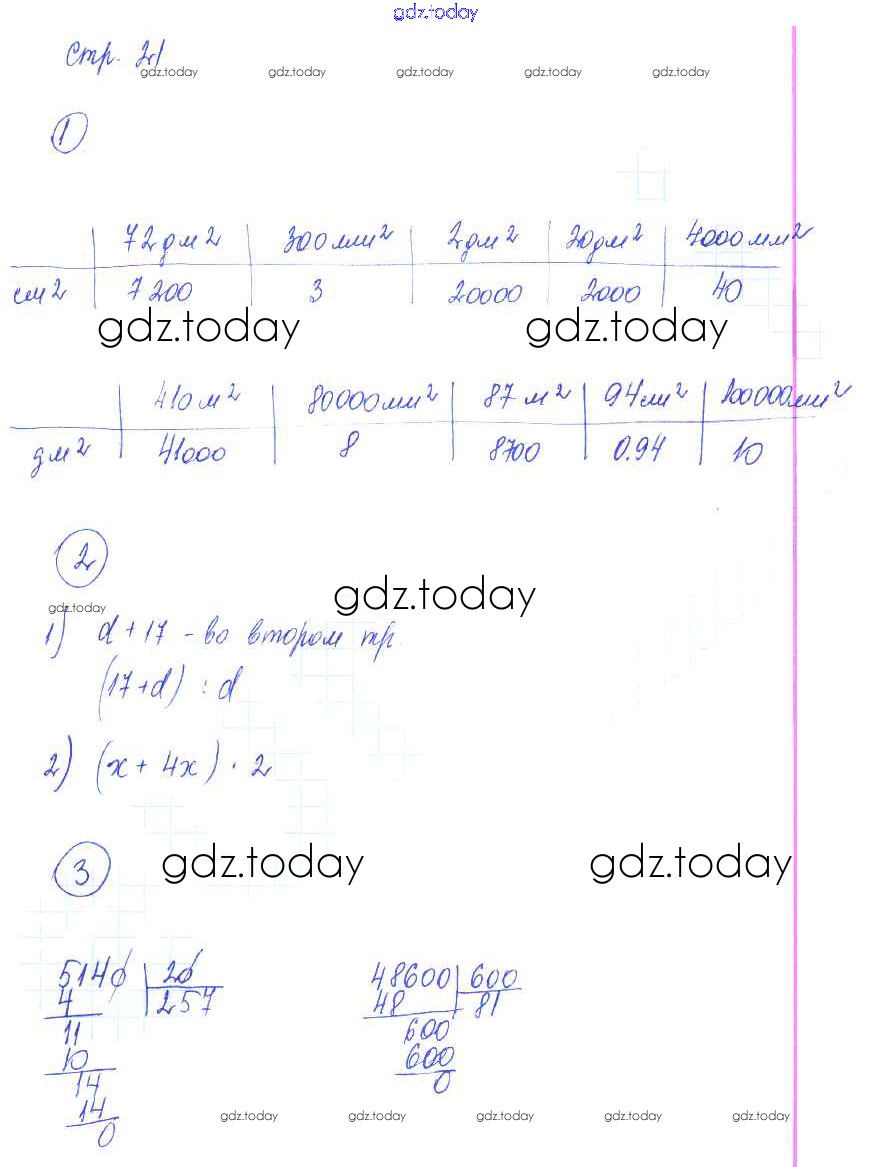 gdz.today
стр. 21
gdz.today gdz.today gdz.today gdz.today gdz.today
1
72дм2 300мм2 2дм2 20дм2 4000мм2
см2 7200 3 20000 2000 40
gdz.today gdz.today
410м2 80000мм2 87м2 94см2 100000мм2
дм2 41000 8 8700 0.94 10
2
gdz.today
gdz.today
1) d+17 - во втором тр.
(17+d) : d
2) (x + 4x) · 2
3
gdz.today gdz.today
5140 20 48600 600
4 257 48 81
11 600
10 600
14 0
14
0
gdz.today gdz.today gdz.today gdz.today gdz.today